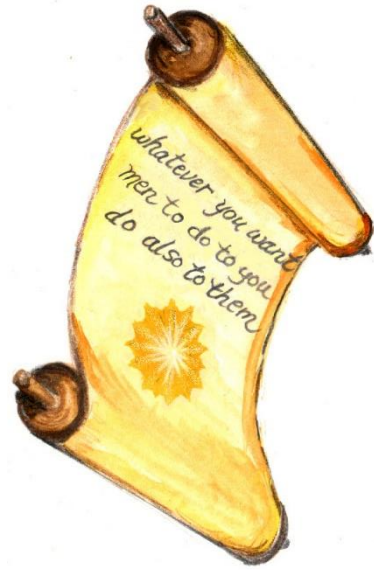 whatever you want
men to do to you
do also to them